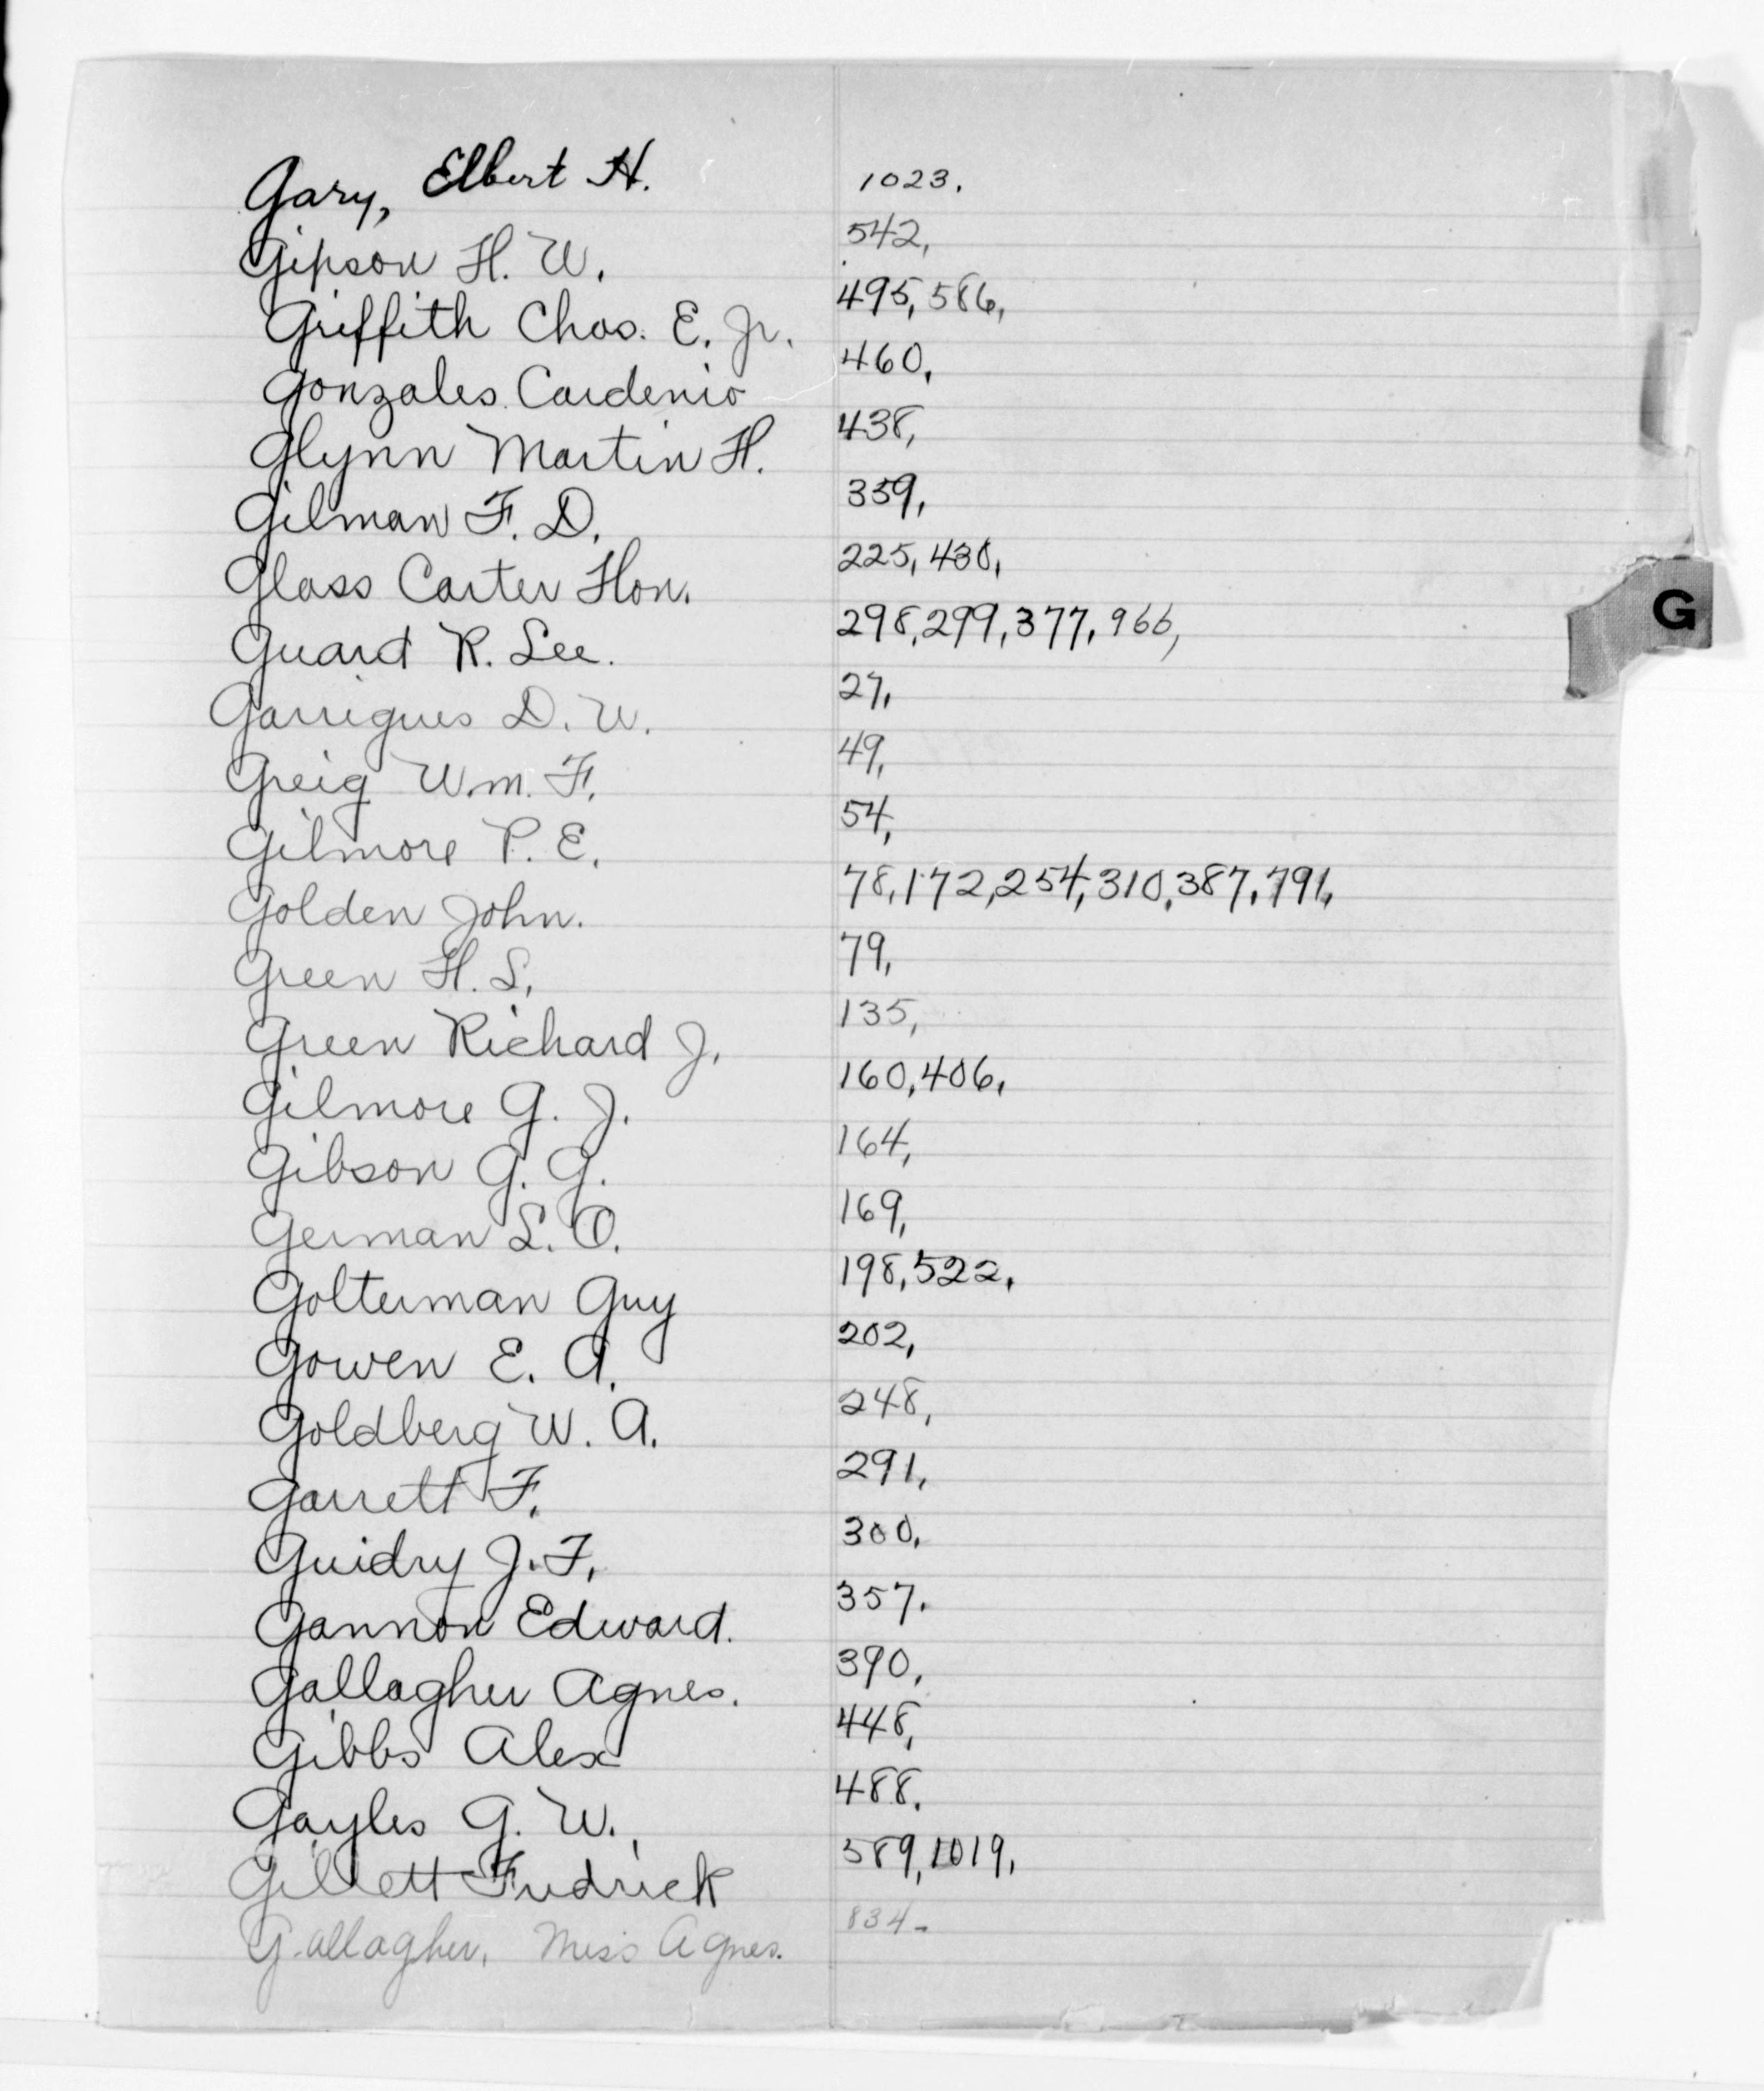 Gary, Elbert H. 1023.
Gipson H. W. 542,
Griffith Chas. E. Jr. 495, 586,
Gonzales. Cardenio 460,
Glynn Martin H. 438,
Gilman F. D. 359,
Glass Carter Hon. 225, 430,
Guard R. Lee. 298, 299, 377, 966,
Garrigues D. W. 27,
Greig Wm. F. 49,
Gilmore P. E. 54,
Golden John. 78, 172, 254, 310, 387, 791,
Green H. S. 79,
Green Richard J. 135,
Gilmore G. J. 160, 406,
Gibson G. G. 164,
German L. O. 169,
Golterman Guy 198, 522,
Gowen E. A. 202,
Goldberg W. A. 248,
Garrett F. 291,
Guidry J. F. 300,
Gannon Edward. 357.
Gallagher Agnes. 390,
Gibbs Alex 448,
Gayles G. W. 488.
Gillett Fredrick 589, 1019,
Gallagher, Miss Agnes. 834-
G